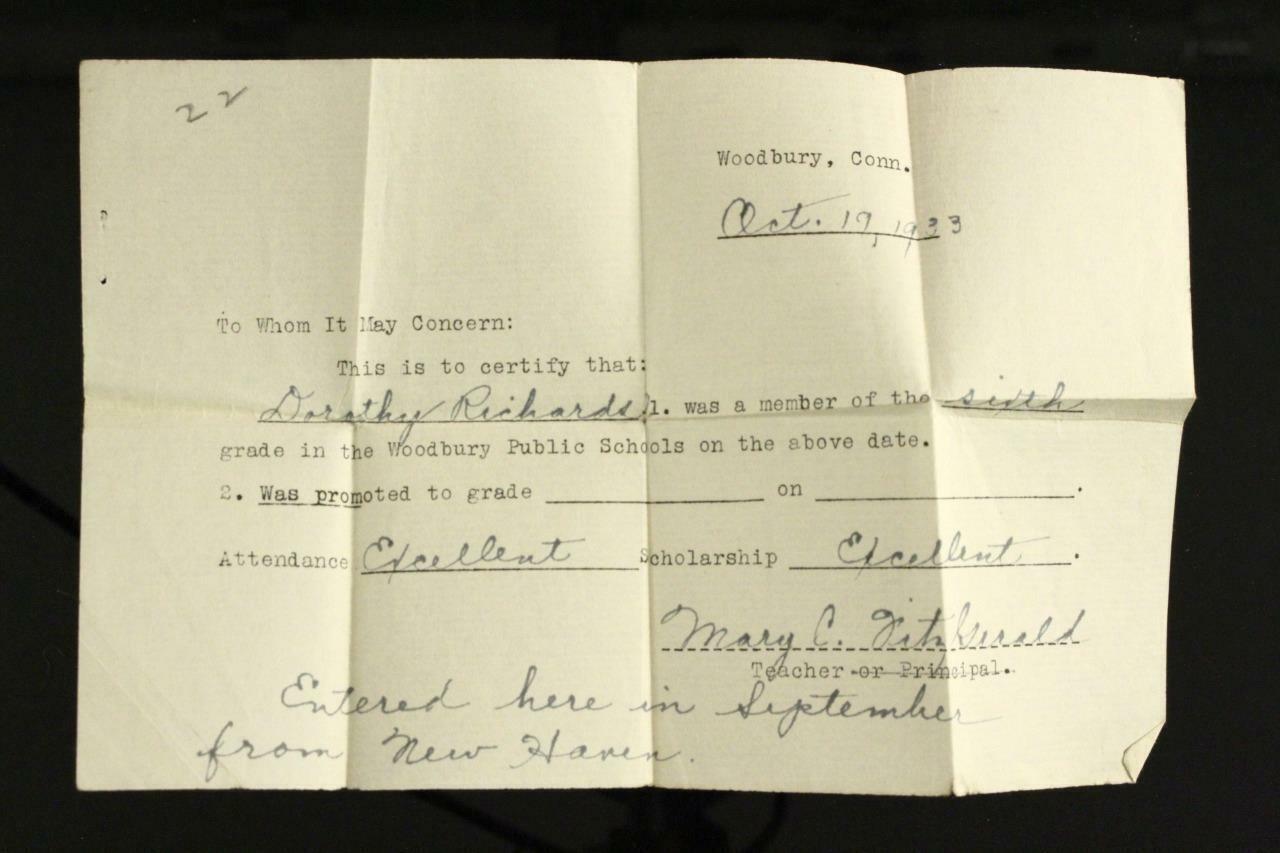 22
Woodbury, Conn.
Oct. 19, 1933
To Whom It May Concern:
This is to certify that:
Dorothy Richards 1. was a member of the sixth
grade in the Woodbury Public Schools on the above date.
2. Was promoted to grade ____________ on ______________.
Attendance Excellent Scholarship Excellent .
Mary C. FitzGerald
Teacher or Principal.
Entered here in September
from New Haven.